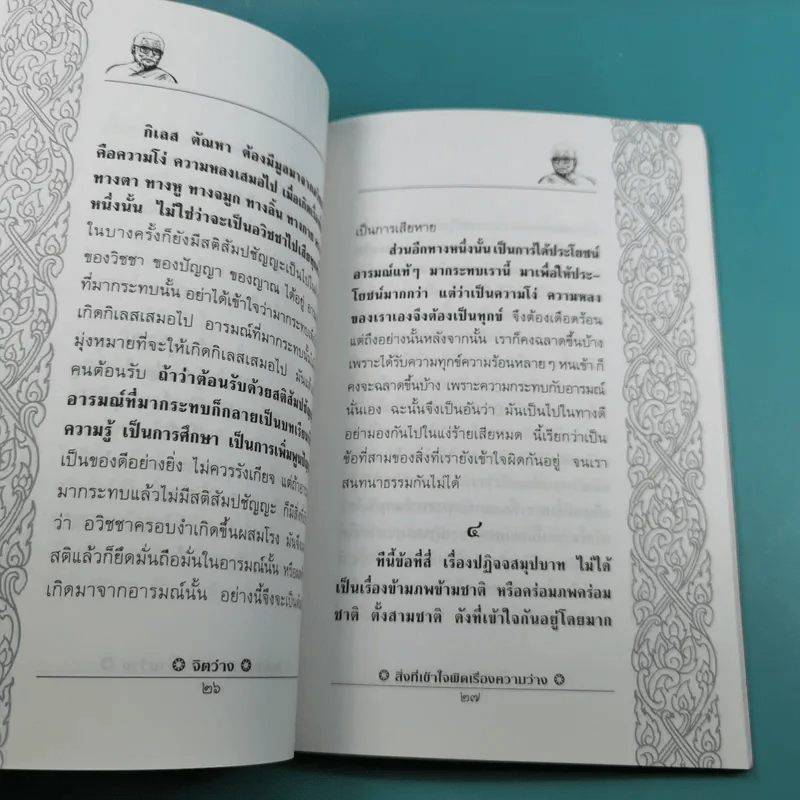 กิเลส ตัณหา ต้องมีมูลมาจาก
คือความโง่ ความหลงเสมอไป เมื่อเกิด
ทางตา ทางหู ทางจมูก ทางลิ้น ทางกาย
หนึ่งนั้น ไม่ใช่ว่าจะเป็นอวิชชาไปเสีย
ในบางครั้งก็ยังมีสติสัมปชัญญะเป็นไปใน
ของวิชชา ของปัญญา ของญาณ ได้อยู่
ที่มากระทบนั้น อย่าได้เข้าใจว่ามากระทบ
เกิดกิเลสเสมอไป อารมณ์ที่มากระทบนั้น
มุ่งหมายที่จะให้เกิดกิเลสเสมอไป มัน
คนต้อนรับ ถ้าว่าต้อนรับด้วยสติสัมปชัญ
อารมณ์ที่มากระทบก็กลายเป็นบทเรียน
ความรู้ เป็นการศึกษา เป็นการเพิ่มพูน
เป็นของดีอย่างยิ่ง ไม่ควรรังเกียจ แต่ถ้า
มากระทบแล้วไม่มีสติสัมปชัญญะ ก็มีสิ่งที่
ว่า อวิชชาครอบงำเกิดขึ้นผสมโรง มัน
สติแล้วก็ยึดมั่นถือมั่นในอารมณ์นั้น หรือ
เกิดมาจากอารมณ์นั้น อย่างนี้จึงจะเป็น
จิตว่าง
๒๖
เป็นการเสียหาย
ส่วนอีกทางหนึ่งนั้น เป็นการได้ประโยชน์
อารมณ์แท้ๆ มากระทบเรานี้ มาเพื่อให้ประ-
โยชน์มากกว่า แต่ว่าเป็นความโง่ ความหลง
ของเราเองจึงต้องเป็นทุกข์ จึงต้องเดือดร้อน
แต่ถึงอย่างนั้นหลังจากนั้น เราก็คงฉลาดขึ้นบ้าง
เพราะได้รับความทุกข์ความร้อนหลายๆ หนเข้า ก็
คงจะฉลาดขึ้นบ้าง เพราะความกระทบกับอารมณ์
นั่นเอง ฉะนั้นจึงเป็นอันว่า มันเป็นไปในทางดี
อย่ามองกันไปในแง่ร้ายเสียหมด นี้เรียกว่าเป็น
ข้อที่สามของสิ่งที่เรายังเข้าใจผิดกันอยู่ จนเรา
สนทนาธรรมกันไม่ได้
๔
ทีนี้ข้อที่สี่ เรื่องปฏิจจสมุปบาท ไม่ได้
เป็นเรื่องข้ามภพข้ามชาติ หรือคร่อมภพคร่อม
ชาติ ตั้งสามชาติ ดังที่เข้าใจกันอยู่โดยมาก
สิ่งที่เข้าใจผิดเรื่องความว่าง
๒๗